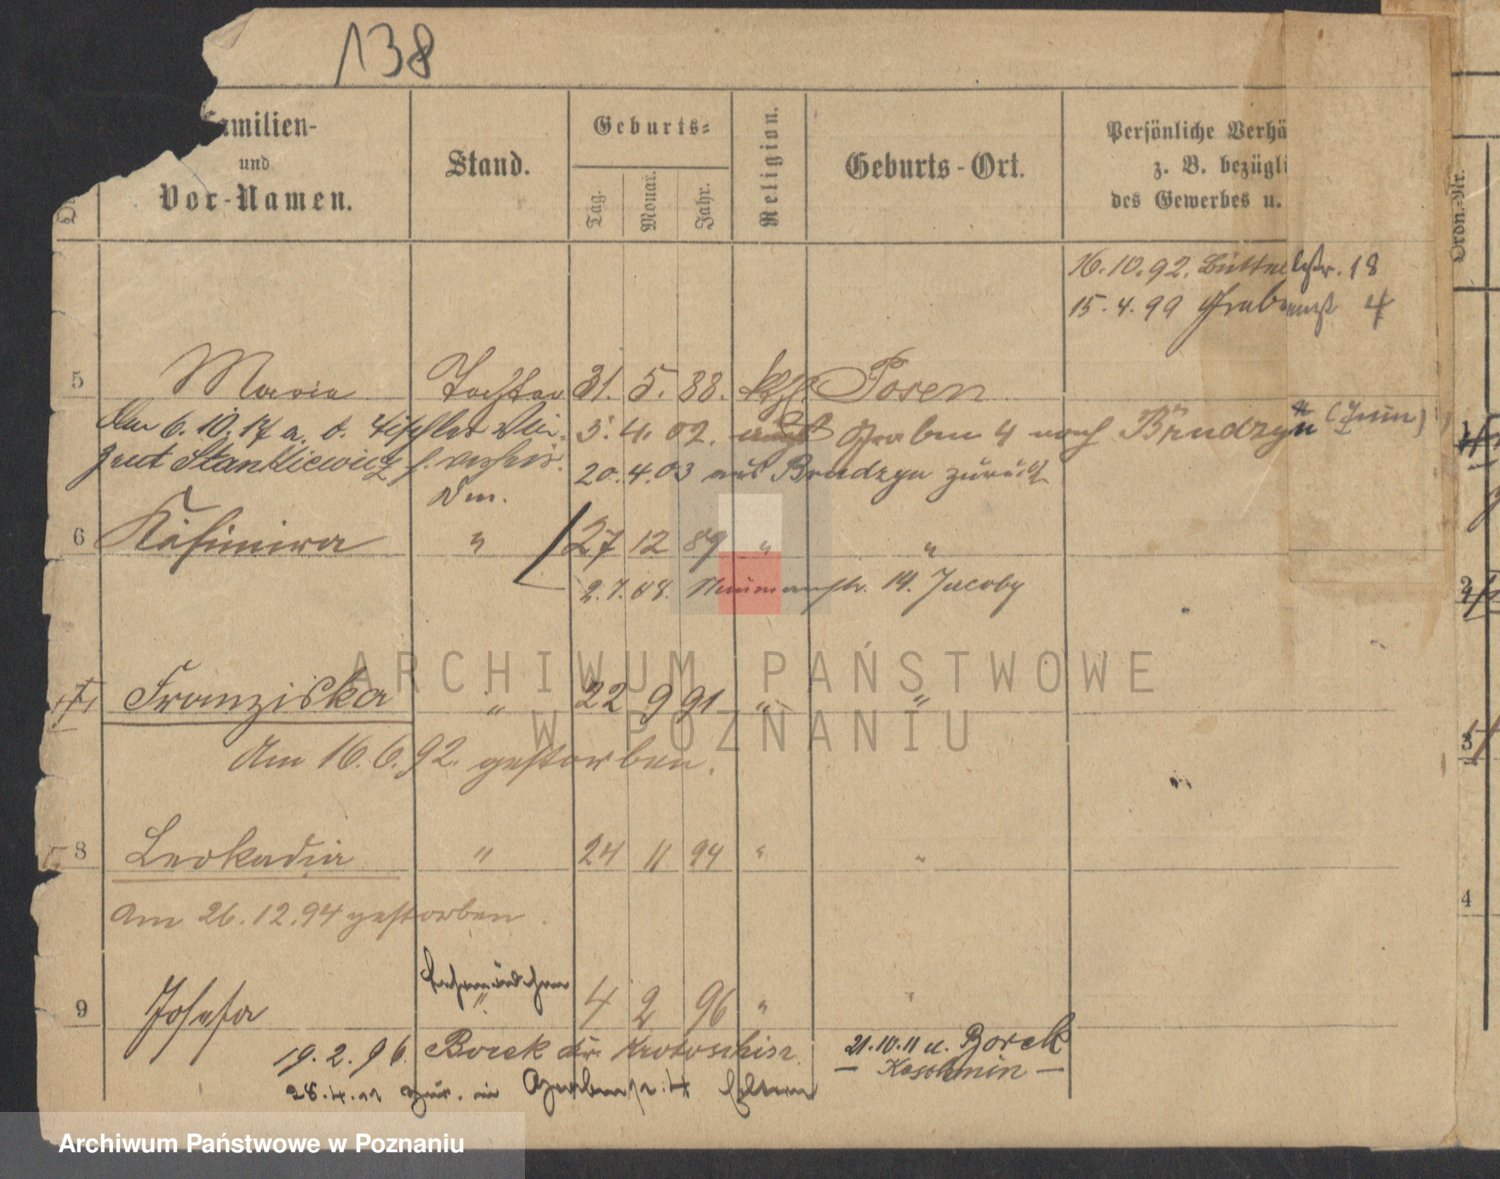 138
Familien-
und
Vor-Namen.
Stand.
Geburts-
Tag.
Monat.
Jahr.
Religion.
Geburts-Ort.
Persönliche Verhä
z. B. bezügli
des Gewerbes u.
Ordn.-Nr.
16.10.92. Büttelstr. 18
15.4.99 Grabenstr 4
5 Maria Tochter 31. 5. 88. kth. Posen
Am 6.10.17 a. d. Tischler
5. 4. 02. Graben 4 nach Brudzyn (Znin)
gent Stankiewicz
20.4.03 aus Brudzyn zurück
6 Kasimira " 27 12 89 " "
14. Jacoby
7 Franziska " 22 9 91 " "
Am 16.6.92. gestorben.
8 Leokadia " 24 11 94 " "
Am 26.12.94 gestorben.
9 Josefa " 4 2 96 " "
19.2.96. Borek Kr. Krotoschin.
21.10.11 u. Borek
— Koschmin —
28.4. zur. in Grabenstr. 4 Eltern
1
2
3
4
ARCHIWUM PAŃSTWOWE
W POZNANIU
Archiwum Państwowe w Poznaniu